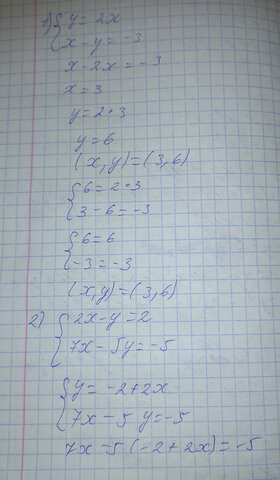 1) { y = 2x
{ x - y = -3
x - 2x = -3
x = 3
y = 2 · 3
y = 6
(x, y) = (3, 6)
{ 6 = 2 · 3
{ 3 - 6 = -3
{ 6 = 6
{ -3 = -3
(x, y) = (3, 6)
2) { 2x - y = 2
{ 7x - 5y = -5
{ y = -2 + 2x
{ 7x - 5 y = -5
7x - 5 (-2 + 2x) = -5